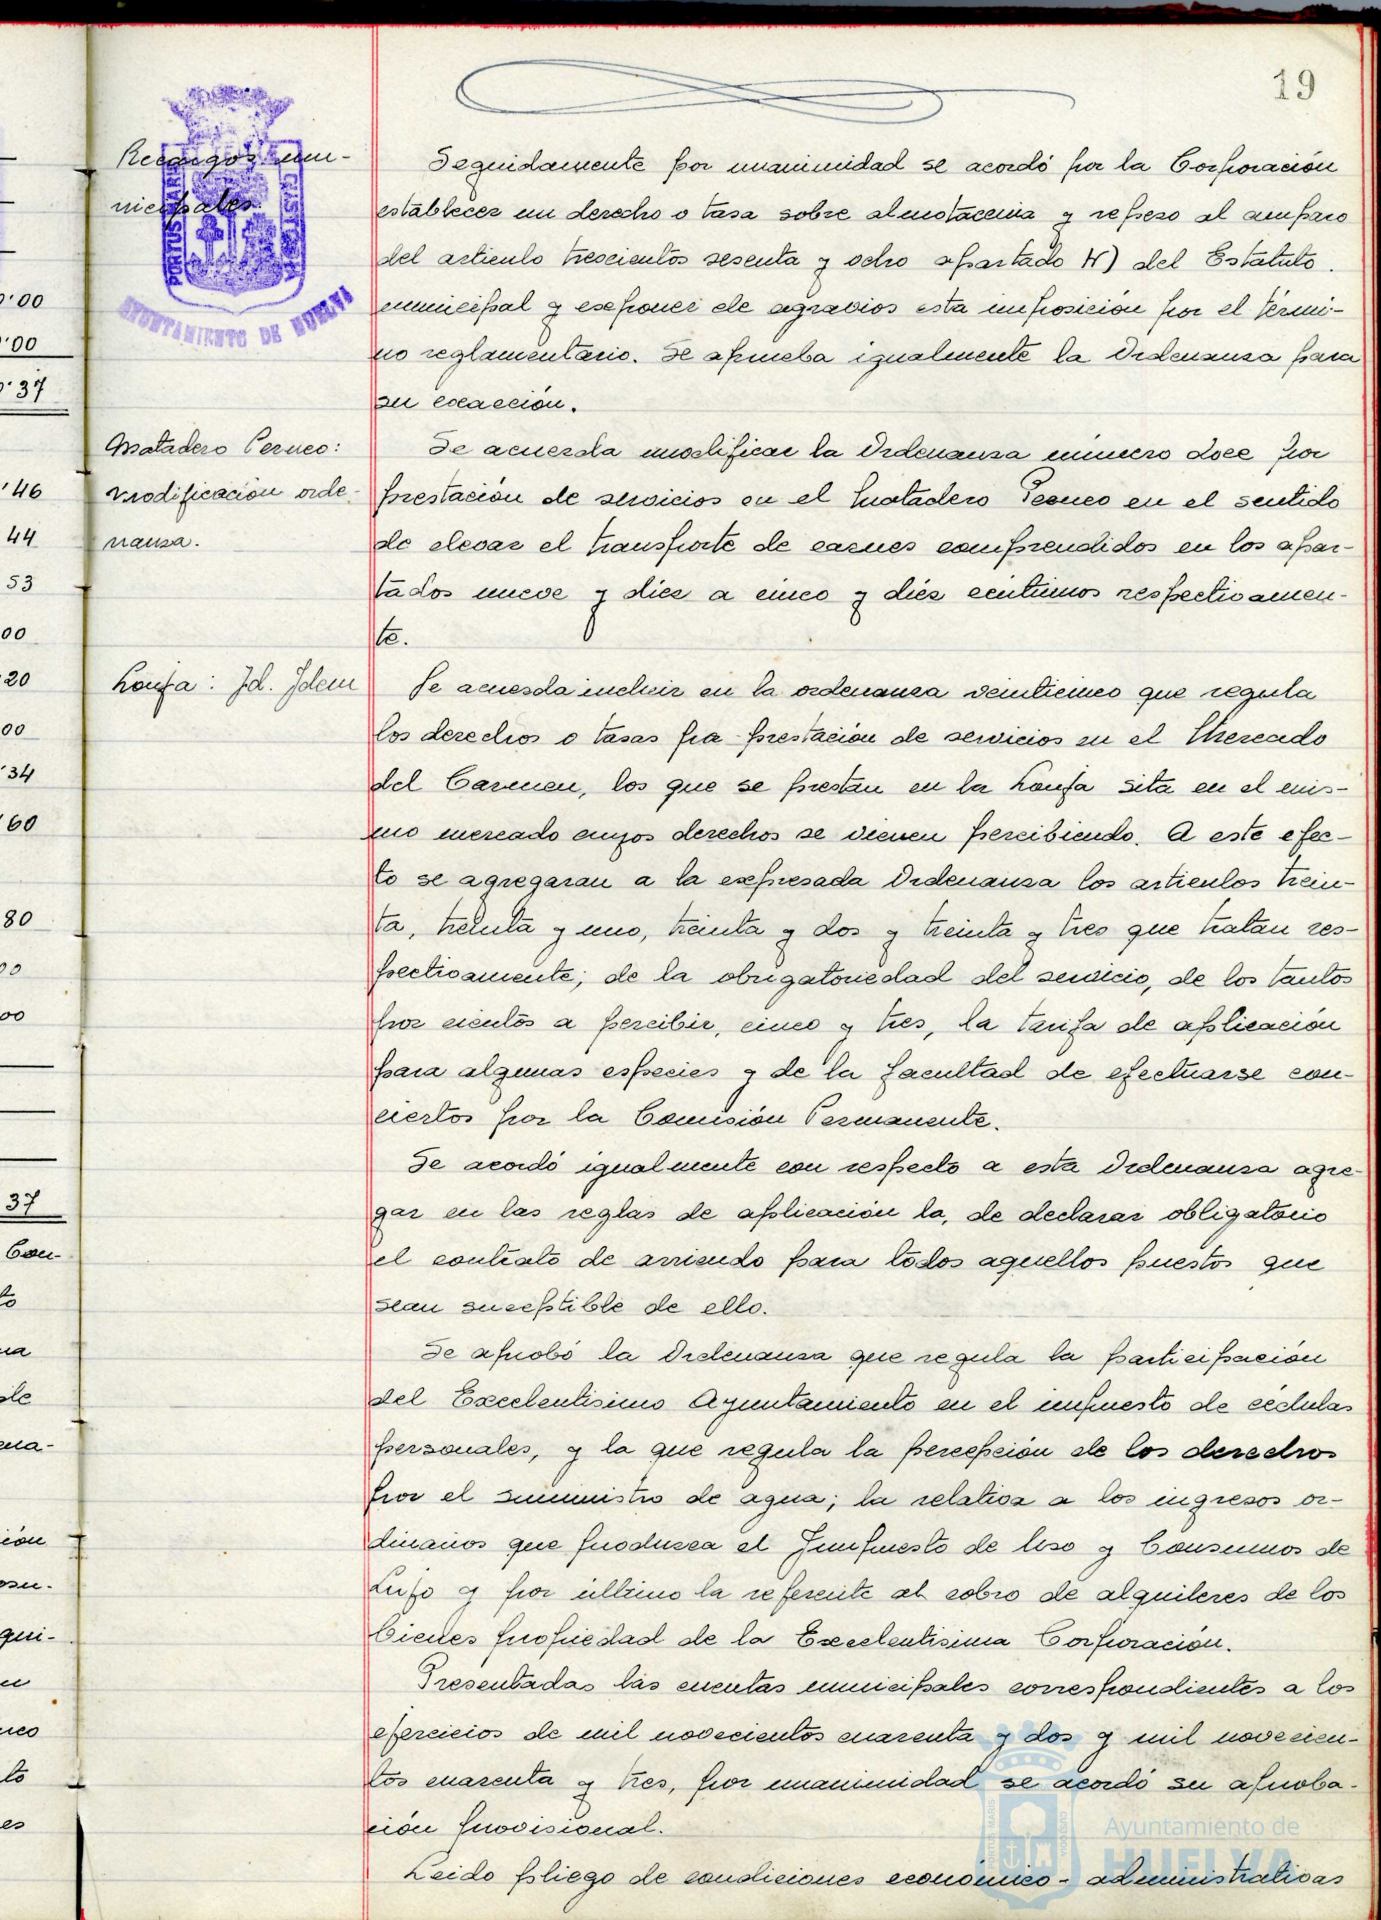 19
Recargos mu-
nicipales.
PORTUS MARIS
CUSTODIA
AYUNTAMIENTO DE HUELVA
Seguidamente por unanimidad se acordó por la Corporación
establecer un derecho o tasa sobre almotacenia y repeso al amparo
del articulo trescientos sesenta y ocho apartado N) del Estatuto
municipal y exponer de agravios esta imposición por el térmi-
no reglamentario. Se aprueba igualmente la Ordenanza para
su exacción.
Matadero Perneo:
modificación orde-
nanza.
Se acuerda modificar la Ordenanza número doce por
prestación de servicios en el Matadero Perneo en el sentido
de elevar el transporte de carnes comprendidos en los apar-
tados nueve y diez a cinco y diez centimos respectivamen-
te.
Lonja: Id. Idem
Se acuerda incluir en la ordenanza veinticinco que regula
los derechos o tasas por prestación de servicios en el Mercado
del Carmen, los que se prestan en la Lonja sita en el mis-
mo mercado cuyos derechos se vienen percibiendo. A este efec-
to se agregaran a la expresada Ordenanza los articulos trein-
ta, treinta y uno, treinta y dos y treinta y tres que tratan res-
pectivamente; de la obrigatoriedad del servicio, de los tantos
por cientos a percibir, cinco y tres, la tarifa de aplicación
para algunas especies y de la facultad de efectuarse con-
ciertos por la Comisión Permanente.
Se acordó igualmente con respecto a esta Ordenanza agre-
gar en las reglas de aplicación la, de declarar obligatorio
el contrato de arriendo para todos aquellos puestos que
sean suceptible de ello.
Se aprobó la Ordenanza que regula la participación
del Excelentisimo Ayuntamiento en el impuesto de cédulas
personales, y la que regula la percepción de los derechos
por el suministro de agua; la relativa a los ingresos or-
dinarios que produzca el Impuesto de Uso y Consumos de
Lujo y por último la referente al cobro de alquileres de los
bienes propiedad de la Excelentisima Corporación.
Presentadas las cuentas municipales correspondientes a los
ejercicios de mil novecientos cuarenta y dos y mil novecien-
tos cuarenta y tres, por unanimidad se acordó su aproba-
ción provisional.
Leido pliego de condiciones económico-administrativas
Ayuntamiento de
HUELVA